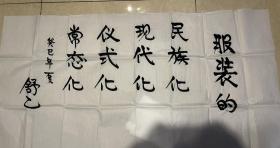 服装的
民族化
现代化
仪式化
常态化
癸巳年夏
舒乙